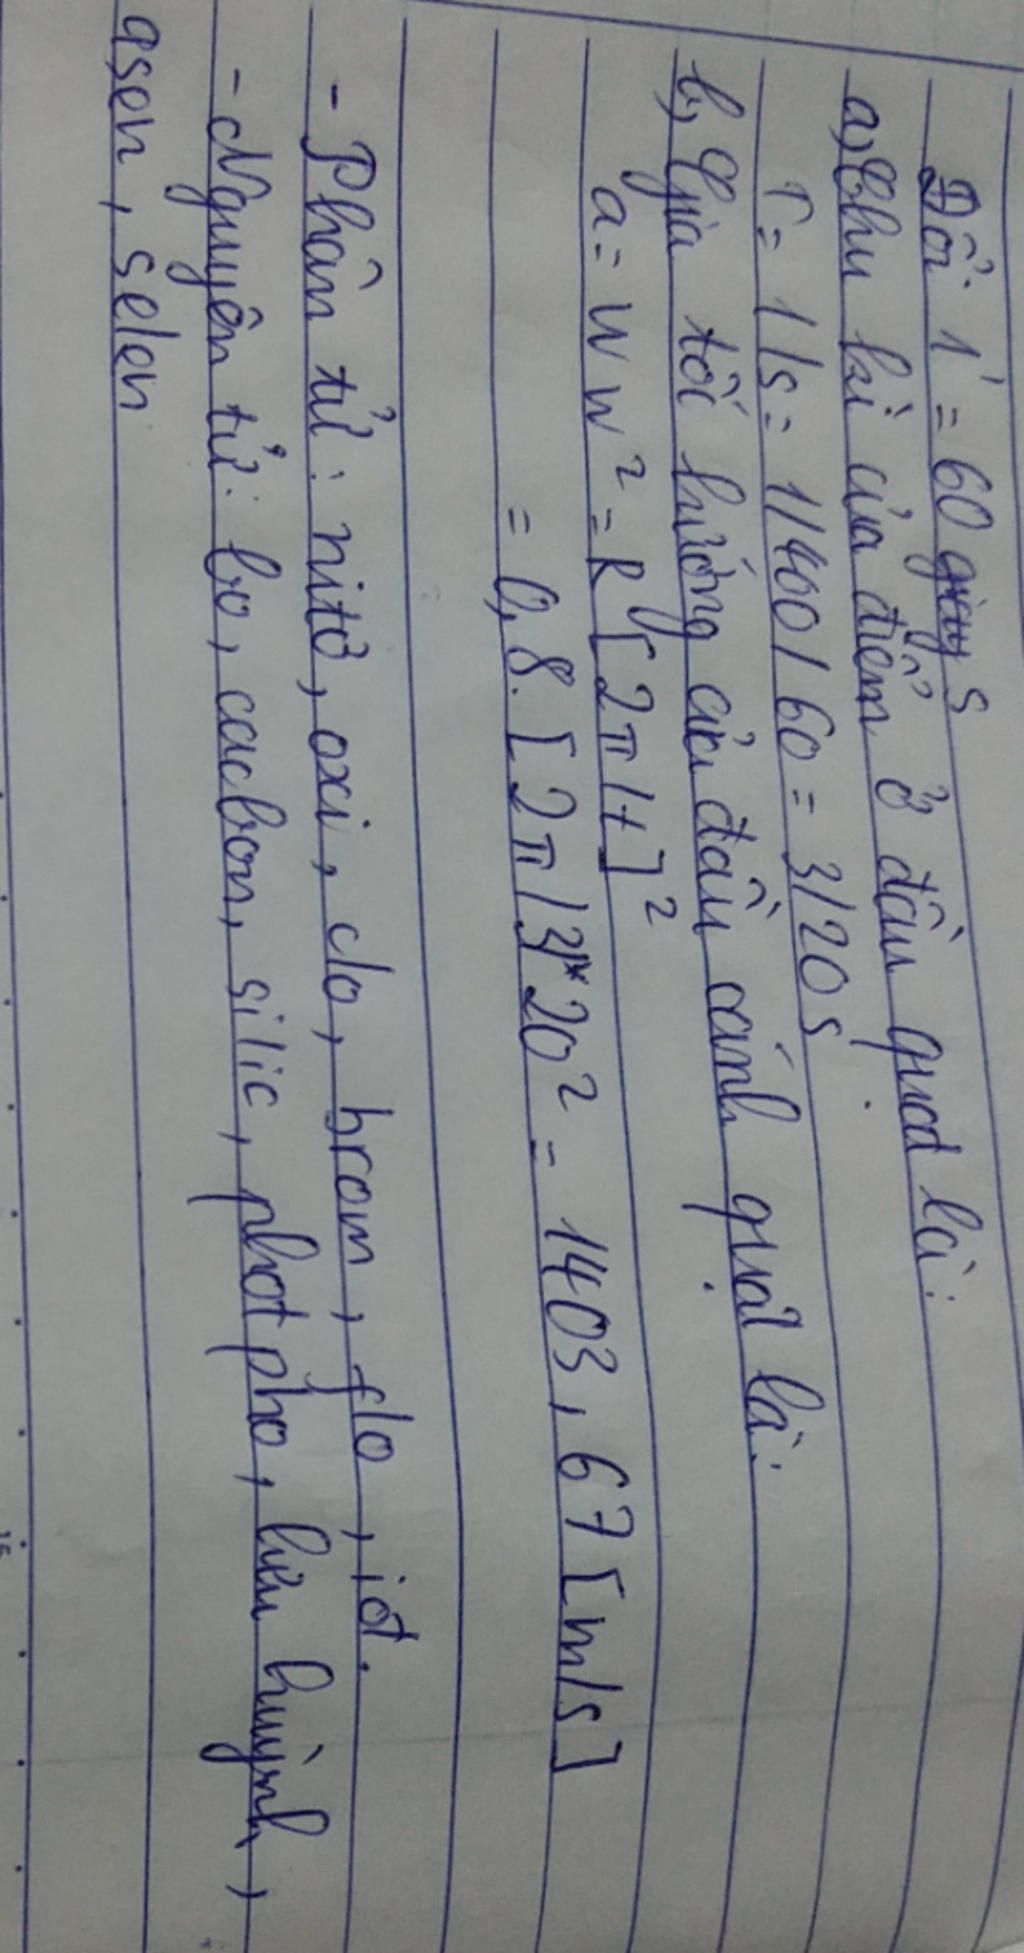 Đổi 1' = 60 s
a, Chu kì của điểm ở đầu quạt là:
T = 1/s = 1/400/60 = 3/20 s
b, Gia tốc hướng của đầu cánh quạt là:
a = w w² = R [2π/t]²
= 0,8. [2π/3*20² = 1403,67 [m/s]
- Phân tử: nitơ, oxi, clo, brom, flo, iot.
- Nguyên tử: bo, cacbon, silic, photpho, lưu huỳnh,
asen, selen